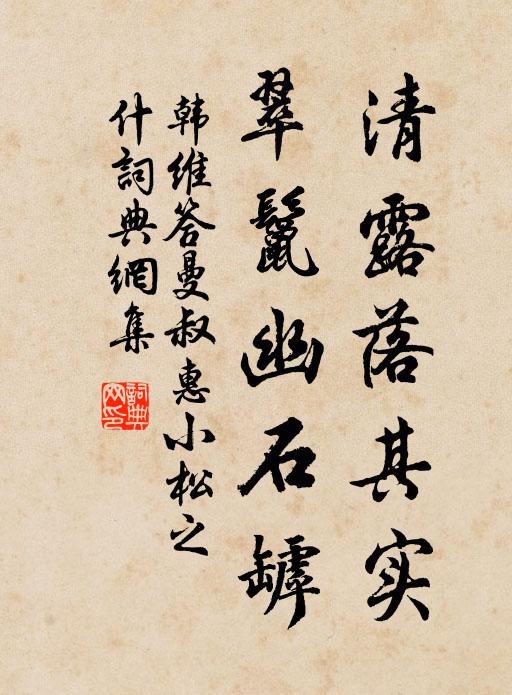 清露落其实
翠鬣幽石罅
韩维答曼叔惠小松之
什詞典網集
詞典網印